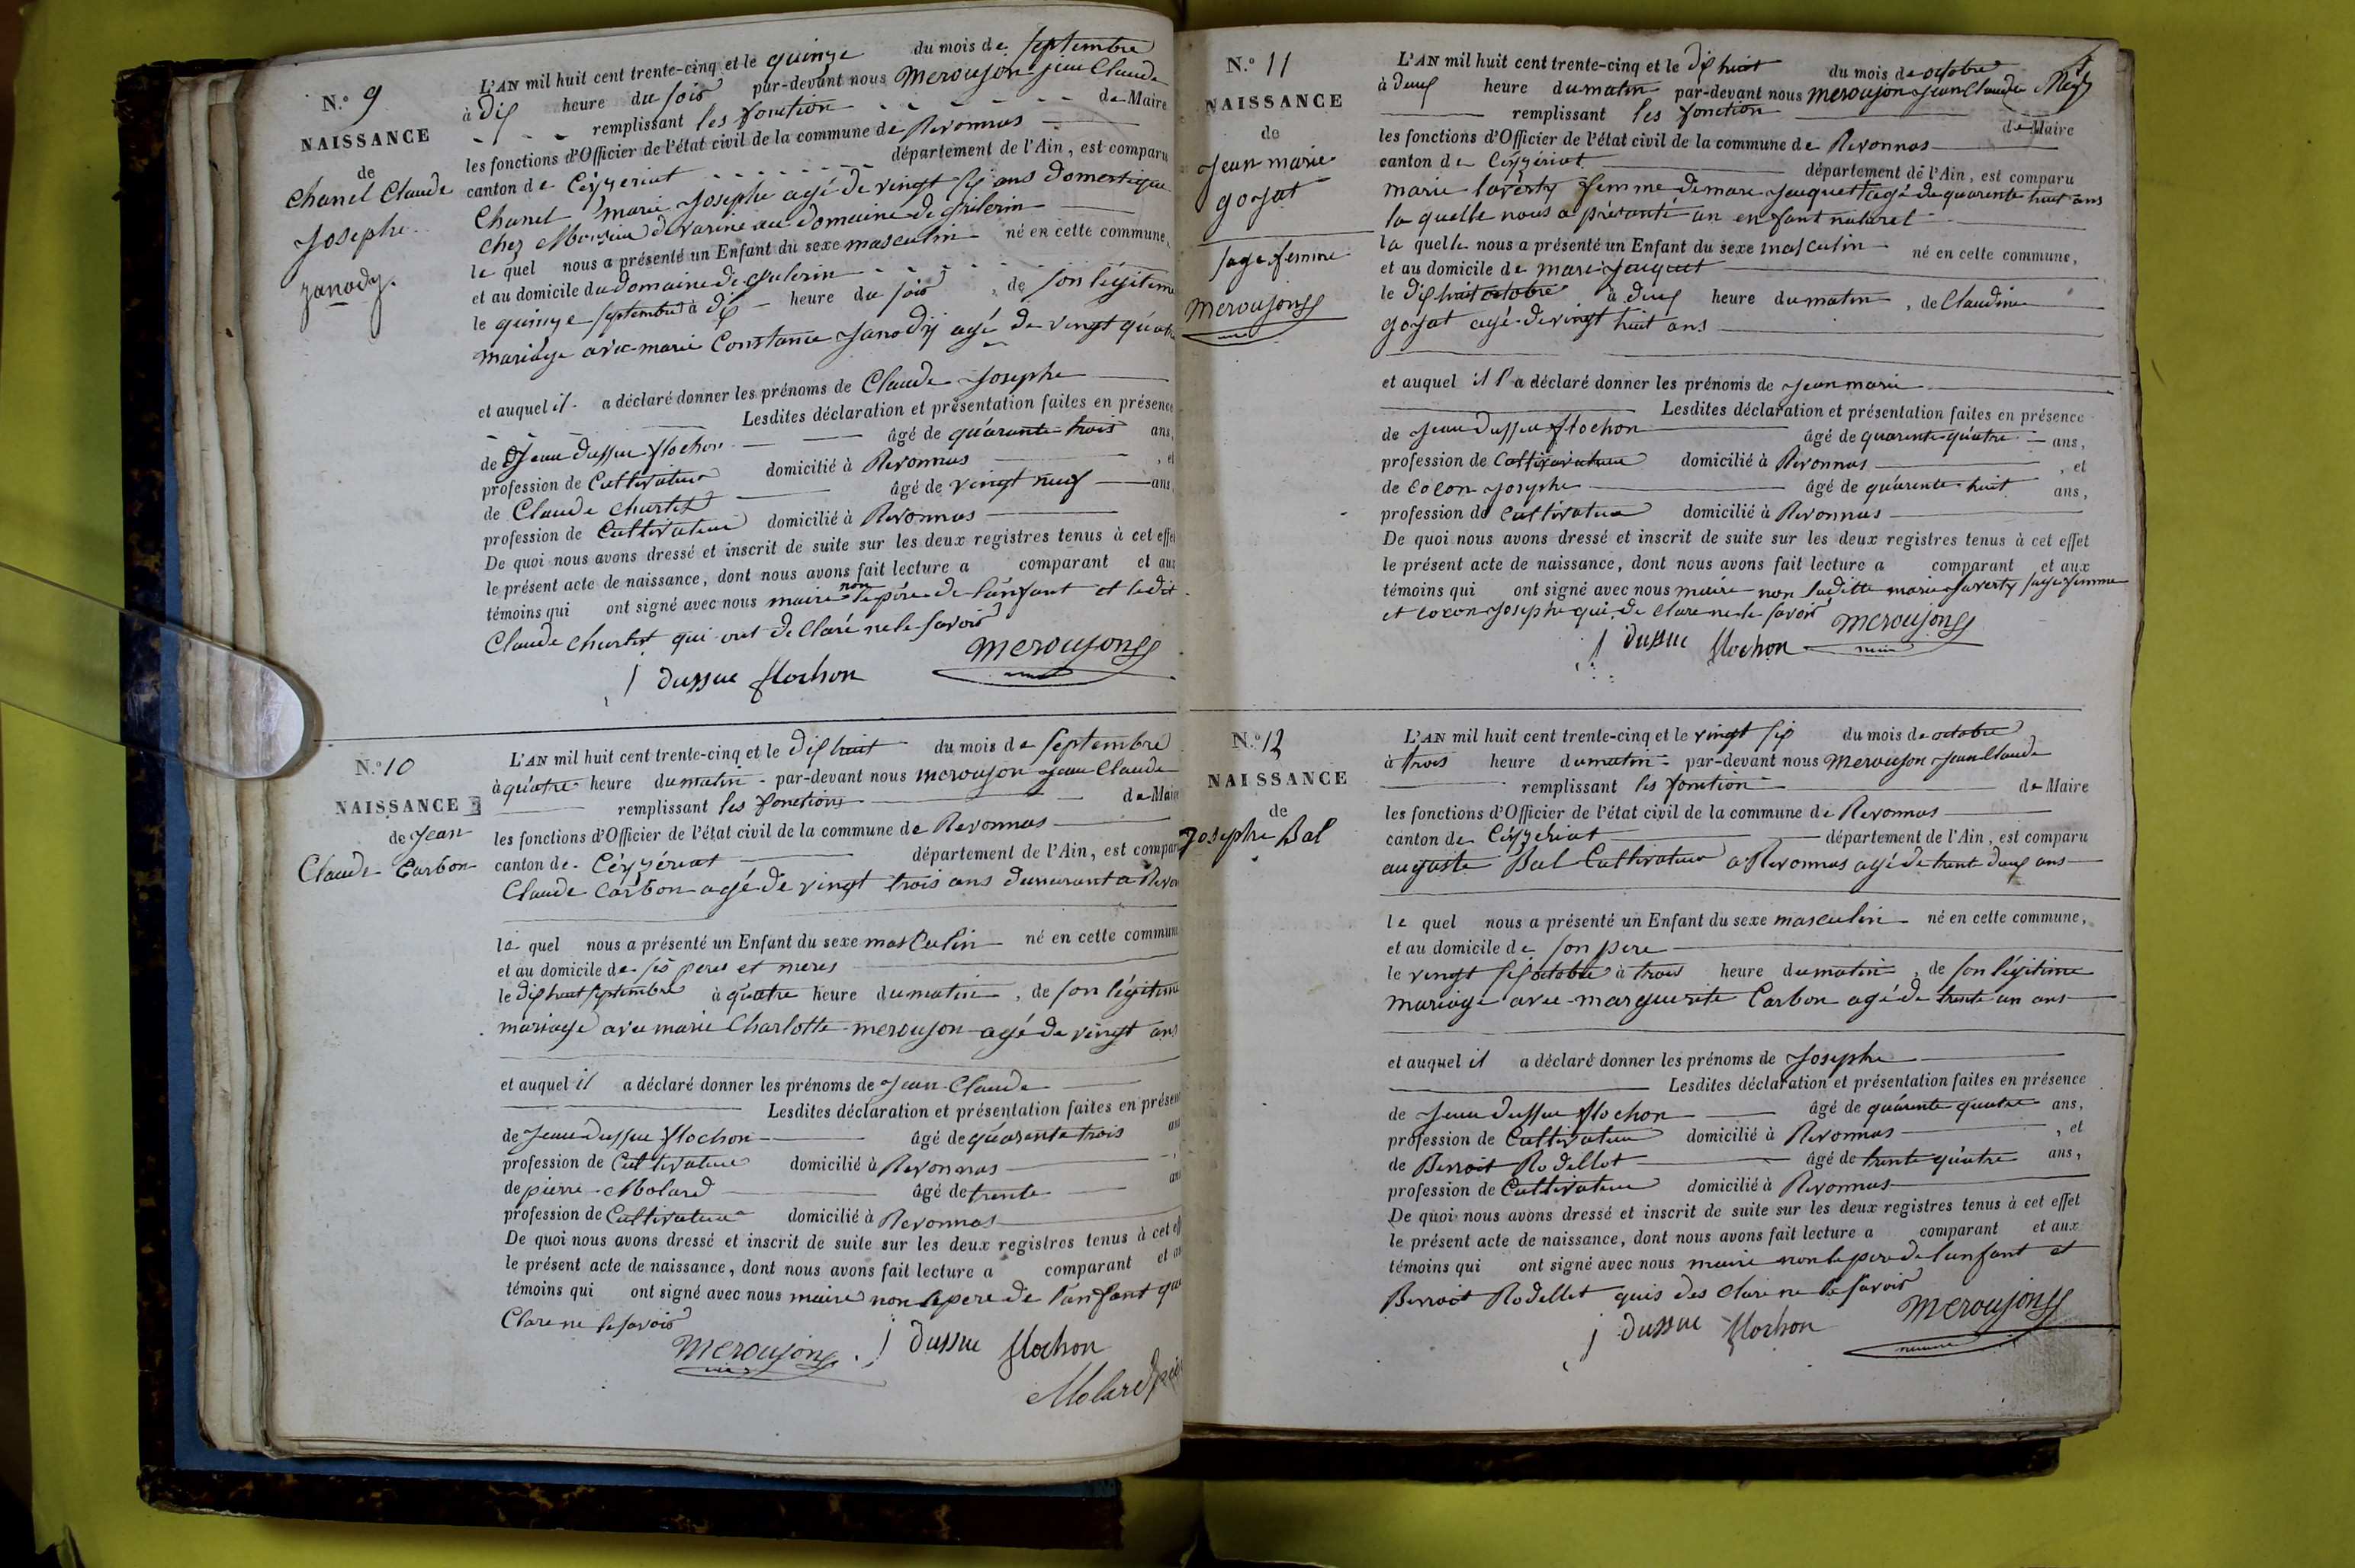 N.º 9
NAISSANCE
de
Chanel Claude
Josephe
Janody.
L'AN mil huit cent trente-cinq et le quinze du mois de septembre
à dix heure du soir par-devant nous Meroujon jean Claude
remplissant les fonction de Maire
les fonctions d'Officier de l'état civil de la commune de Revonnas
canton de Ceyzeriat département de l'Ain, est comparu
Chanel marie Josephe agé de vingt six ans domestique
chez Monsieur devarine au domaine de
le quel nous a présenté un Enfant du sexe masculin né en cette commune,
et au domicile du domaine de
le quinze septembre à dix heure du soir, de son légitime
mariage avec marie Constance Janody agé de vingt quatre
et auquel il a déclaré donner les prénoms de Claude Josephe
Lesdites déclaration et présentation faites en présence
de Jean Dussue flochon âgé de quarante trois ans,
profession de Cultivateur domicilié à Revonnas, et
de Claude Chartet âgé de vingt neuf ans,
profession de Cultivateur domicilié à Revonnas
De quoi nous avons dressé et inscrit de suite sur les deux registres tenus à cet effet
le présent acte de naissance, dont nous avons fait lecture a comparant et aux
témoins qui ont signé avec nous maire non le père de l'anfant et ledit
Claude Chartet qui ont declaré ne le savoir
J Dussue flochon Meroujon
N.º 10
NAISSANCE
de Jean
Claude Carbon
L'AN mil huit cent trente-cinq et le dix huit du mois de septembre
à quatre heure du matin par-devant nous meroujon jean Claude
remplissant les fonctions de Maire
les fonctions d'Officier de l'état civil de la commune de Revonnas
canton de Ceyzériat département de l'Ain, est compar
Claude Carbon agé de vingt trois ans demeurant a Revon
le quel nous a présenté un Enfant du sexe masculin né en cette commune
et au domicile de ses peres et meres
le dix huit septembre à quatre heure du matin, de son légitime
mariage avec marie Charlotte meroujon agé de vingt ans
et auquel il a déclaré donner les prénoms de Jean Claude
Lesdites déclaration et présentation faites en présen
de Jean Dussue flochon âgé de quarante trois ans
profession de Cultivateur domicilié à Revonnas
de pierre Molard âgé de trente ans
profession de Cultivateur domicilié à Revonnas
De quoi nous avons dressé et inscrit de suite sur les deux registres tenus à cet eff
le présent acte de naissance, dont nous avons fait lecture a comparant et au
témoins qui ont signé avec nous maire non le pere de l'anfant qui
Clare ne le savoir
Meroujon J Dussue flochon
Molard
N.º 11
NAISSANCE
de
Jean marie
goyat
sage femme
Meroujon
L'AN mil huit cent trente-cinq et le dix huit du mois de octobre
à deux heure du matin par-devant nous meroujon Jean Claude
remplissant les fonction de Maire
les fonctions d'Officier de l'état civil de la commune de Revonnas
canton de Ceyzériat département de l'Ain, est comparu
marie laverty femme de marc Jauquet agé de quarente huit ans
la quelle nous a présanté un enfant naturel
la quelle nous a présenté un Enfant du sexe masculin né en cette commune,
et au domicile de marc Jauquet
le dix huit octobre à deux heure du matin, de Claudine
goyat agé de vingt huit ans
et auquel il l'a déclaré donner les prénoms de Jean marie
Lesdites déclaration et présentation faites en présence
de Jean Dussue flochon âgé de quarente quatre ans,
profession de Cultivateur domicilié à Revonnas, et
de Cocon Josephe âgé de quarente huit ans,
profession de Cultivateur domicilié à Revonnas
De quoi nous avons dressé et inscrit de suite sur les deux registres tenus à cet effet
le présent acte de naissance, dont nous avons fait lecture a comparant et aux
témoins qui ont signé avec nous maire non laditte marie laverty sage femme
et cocon Josephe qui de clare ne le savoir
J Dussue flochon Meroujon
N.º 12
NAISSANCE
de
Josephe Bal
L'AN mil huit cent trente-cinq et le vingt six du mois de octobre
à trois heure du matin par-devant nous Meroujon Jean Claude
remplissant les fonction de Maire
les fonctions d'Officier de l'état civil de la commune de Revonnas
canton de Ceyzeriat département de l'Ain, est comparu
auguste Bal Cultivateur a Revonnas agé de trente deux ans
le quel nous a présenté un Enfant du sexe masculin né en cette commune,
et au domicile de son pere
le vingt six octobre à trois heure du matin, de son légitime
mariage avec marguerite Carbon agé de trente un ans
et auquel il a déclaré donner les prénoms de Josephe
Lesdites déclaration et présentation faites en présence
de Jean Dussue flochon âgé de quarente quatre ans,
profession de Cultivateur domicilié à Revonnas, et
de Benoit Rodellet âgé de trente quatre ans,
profession de Cultivateur domicilié à Revonnas
De quoi nous avons dressé et inscrit de suite sur les deux registres tenus à cet effet
le présent acte de naissance, dont nous avons fait lecture a comparant et aux
témoins qui ont signé avec nous maire non le pere de l'anfant et
Benoit Rodellet quis des clare ne le savoir
J Dussue flochon Meroujon